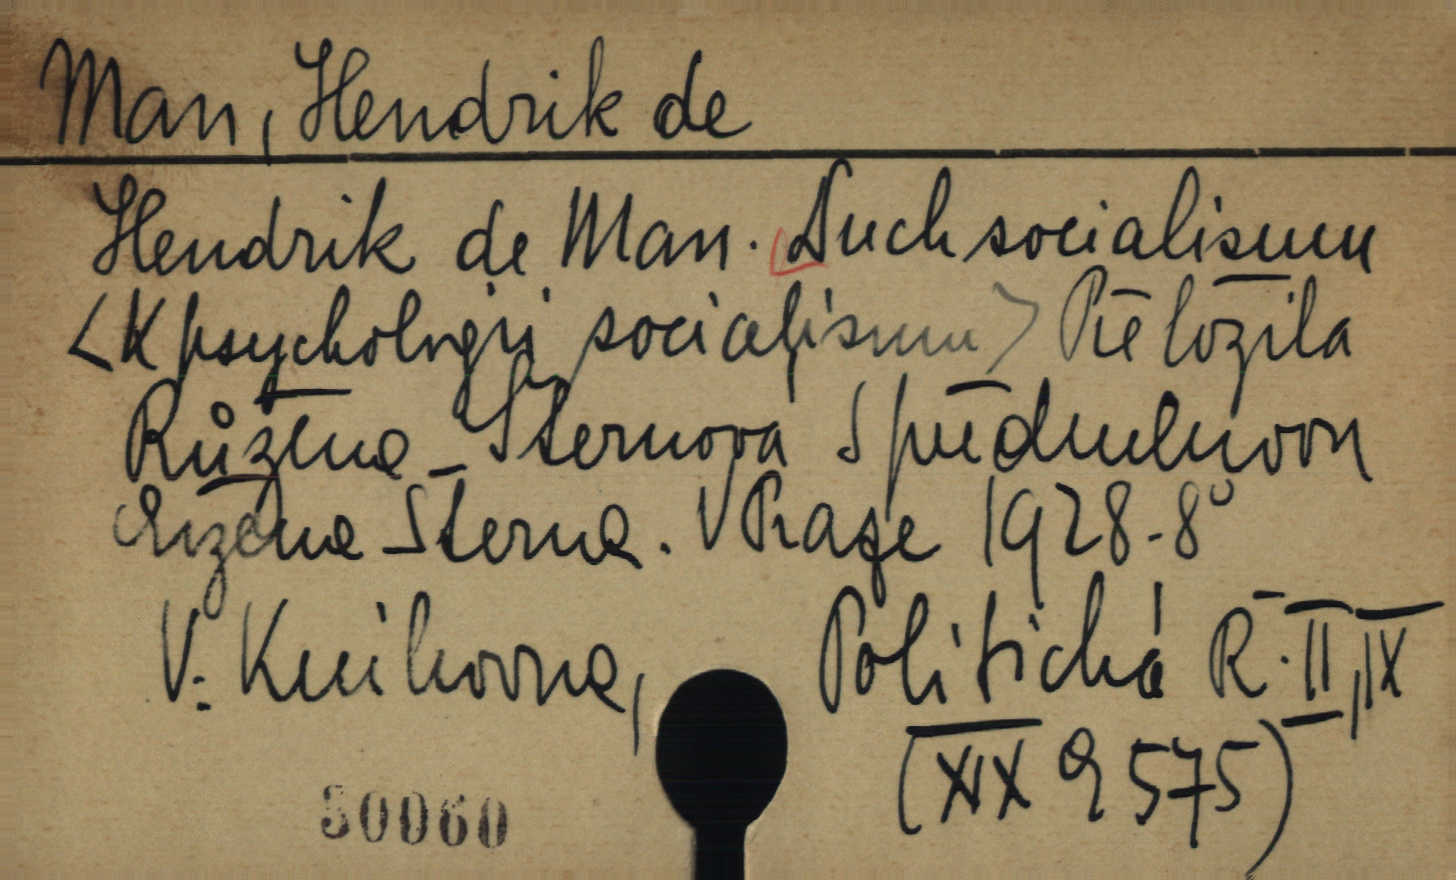 Man, Hendrik de
Hendrik de Man. Duch socialismu
<K psychologii socialismu> Přeložila
Růžena Sternova S předmluvou
Evžena Sterna. V Praze 1928.-8°
V: Knihovna, Politická Ř. II, IX
(XIX Q 575)
50060